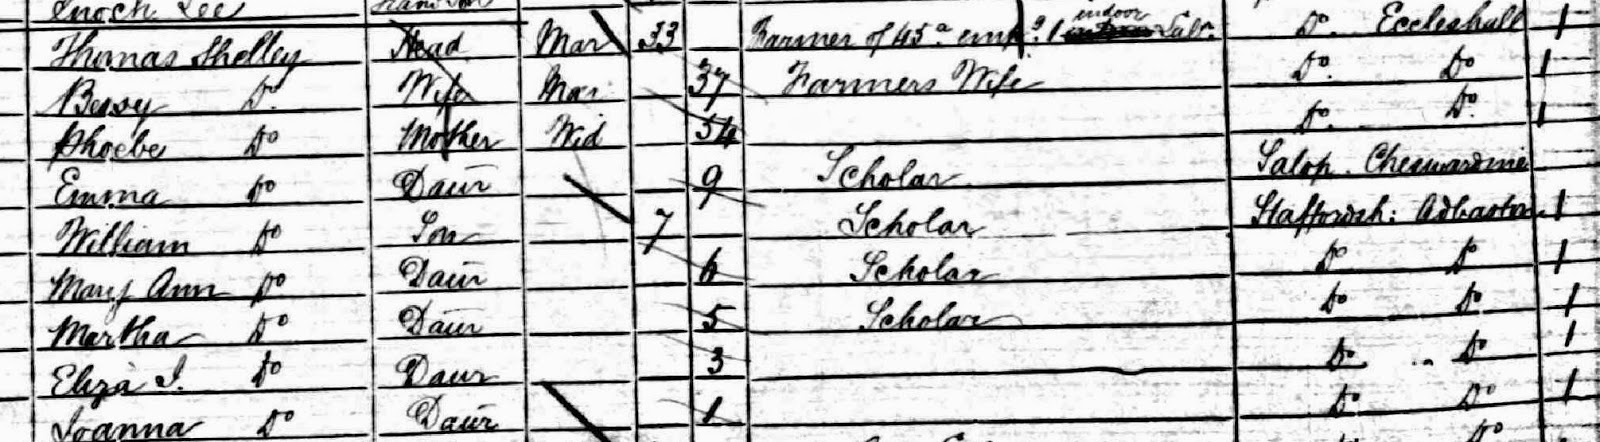 Enoch Lee Grandson
Thomas Shelley Head Mar 33 Farmer of 45 a. emp.g 1 indoor Labr. Do. Eccleshall 1
Bessy Do. Wife Mar 37 Farmers Wife Do. Do 1
Phoebe Do Mother Wid 54 Do. Do. 1
Emma Do Daur 9 Scholar Salop. Cheswardine
William Do Son 7 Scholar Staffordsh: Adbaston 1
Mary Ann Do Daur 6 Scholar Do Do 1
Martha Do Daur 5 Scholar Do Do 1
Eliza J. Do Daur 3 Do Do 1
Joanna Do Daur 1 Do Do 1
Do